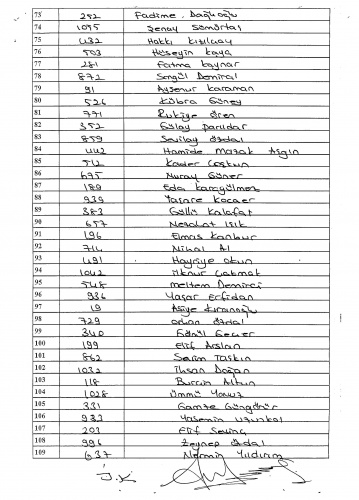 73 252 Fadime Dağlıoğlu
74 1095 Şenay Sömürtaş
75 432 Hakkı Kızılçay
76 503 Hüseyin Kaya
77 281 Fatma Kaynar
78 872 Songül Demiral
79 91 Ayşenur Karaman
80 526 Kübra Güney
81 771 Rukiye Ören
82 352 Gülay
83 859 Sevilay
84 442 Hamide Mazak Aşgın
85 512 Kader Coşkun
86 695 Nuray Güner
87 189 Eda Karagülmez
88 939 Yaşare Kocaer
89 383 Güllü Kalafat
90 657 Nesahat Işık
91 196 Elmas Kanbur
92 714 Nihal Al
93 491 Hayriye Okun
94 1042 İlknur Çakmak
95 548 Meltem Demirci
96 936 Yaşar Erfidan
97 19 Asiye Kıranoğlu
98 729 Orhan
99 340 Gönül Geçer
100 199 Elif Arslan
101 862 Selim Taşkın
102 1032 İhsan Doğan
103 118 Burçin Altun
104 1028 Ümmü Yavuz
105 331 Gamze Güngörür
106 933 Yasemin Uzunkol
107 203 Elif Sevinç
108 996 Zeynep
109 637 Nermin Yıldırım
J.K